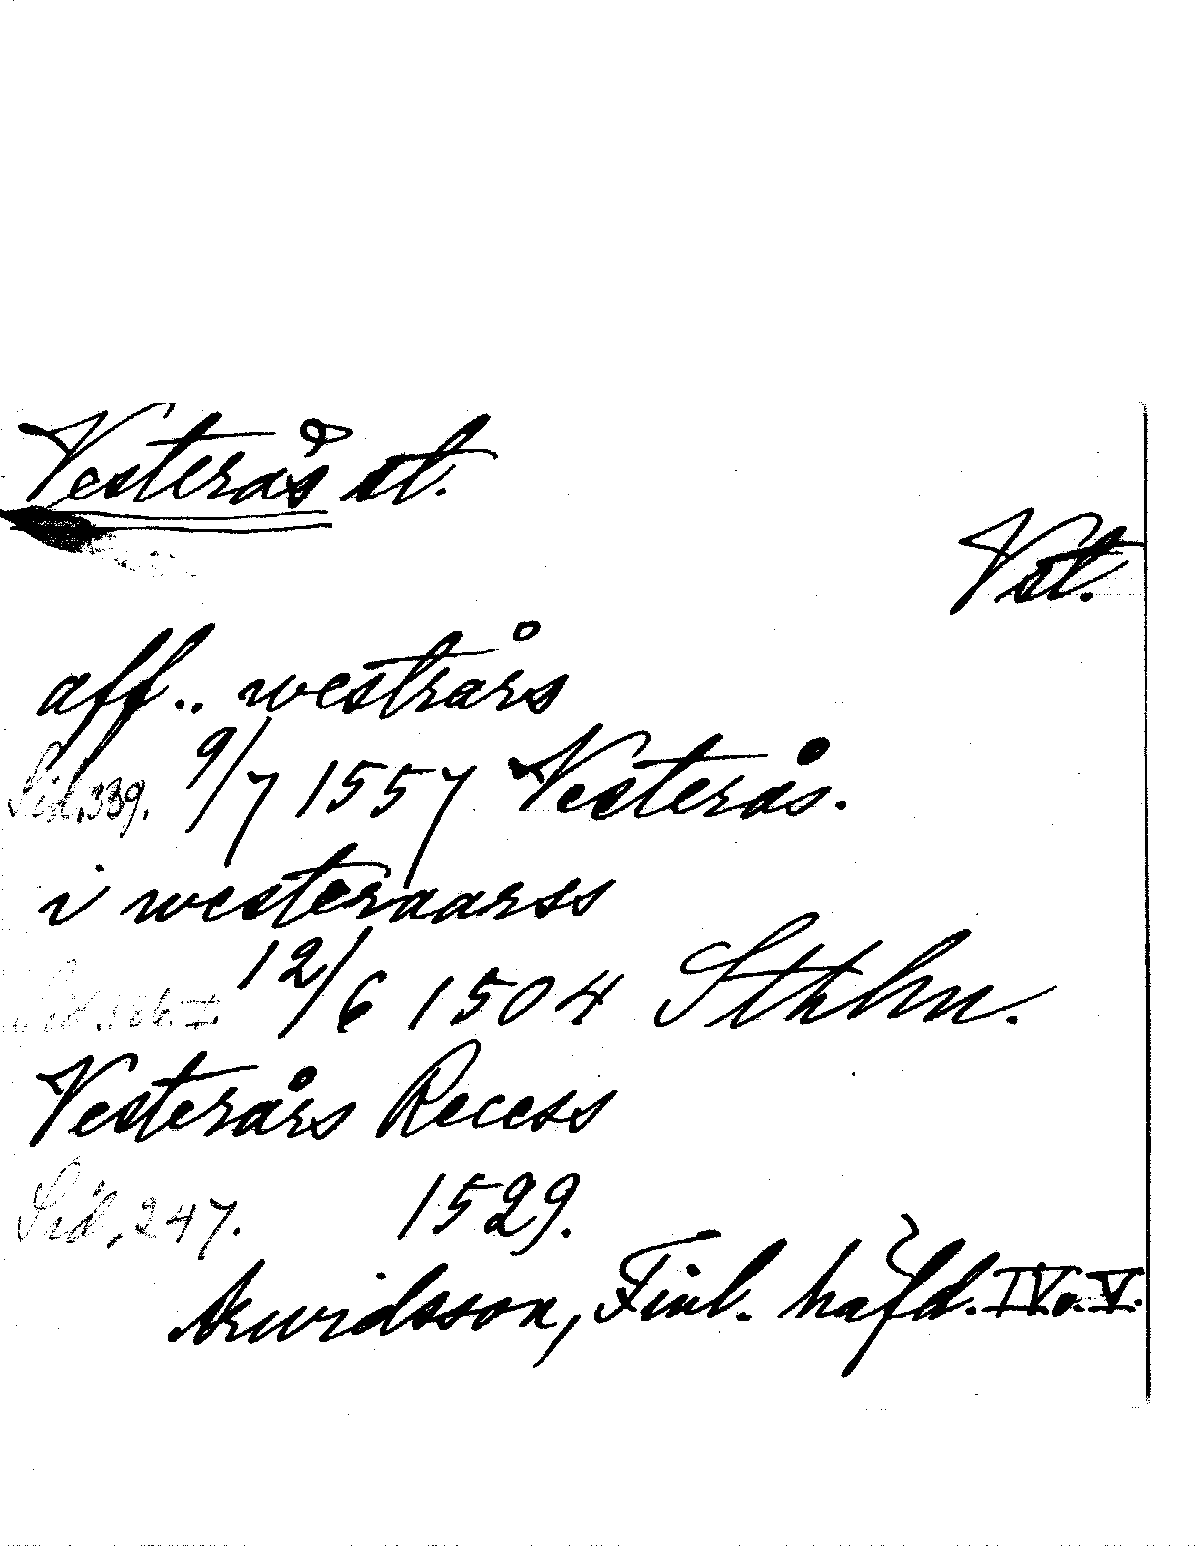 Vesterås st.
Vst.
aff.. westrårs
Sid.339. 9/7 1557 Vesterås.
i westeraarss
12/6 1504 Sthlm.
Vesterårs Recess
Sid, 247. 1529.
Arwidsson, Finl. häfd. IV o. V.